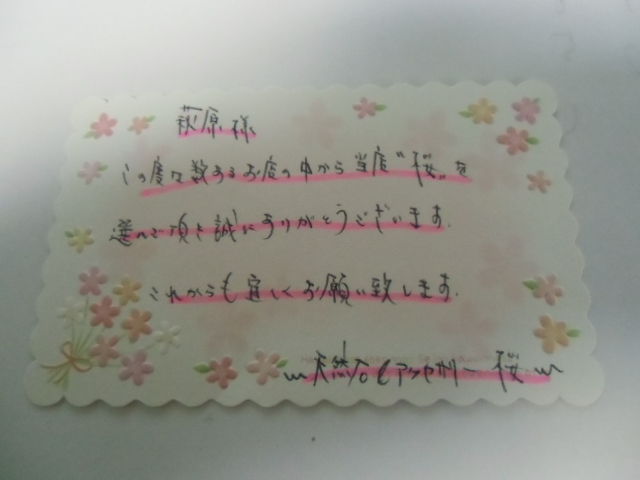 萩原様
この度は数あるお店の中から当店"桜"を
選んで頂き誠にありがとうございます。
これからも宜しくお願い致します。
〜天然石とアクセサリー 桜〜